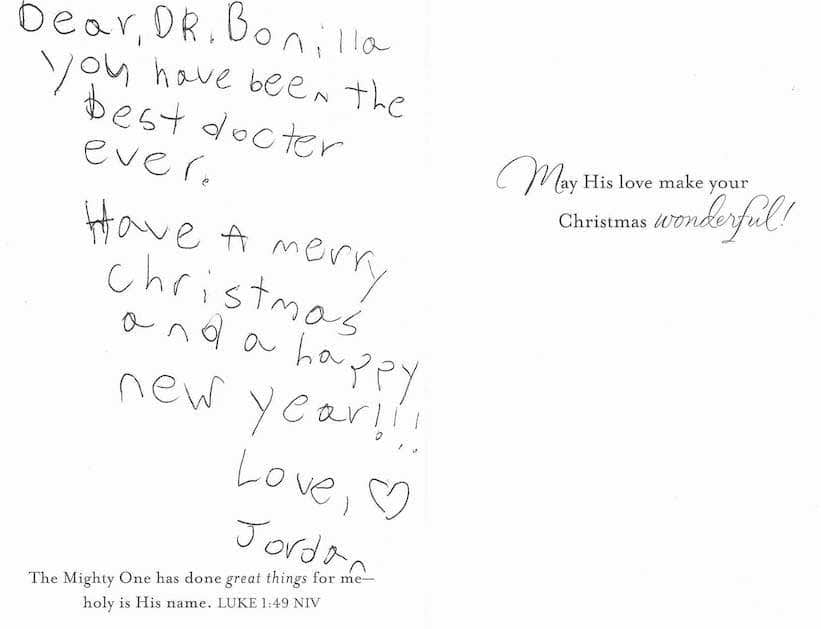 Dear, DR. Bonilla
you have been the
best docter
ever.
Have A merry
christmas
and a happy
new year!!!
Love, ♡
Jordan
The Mighty One has done great things for me—
holy is His name. LUKE 1:49 NIV
May His love make your
Christmas wonderful!